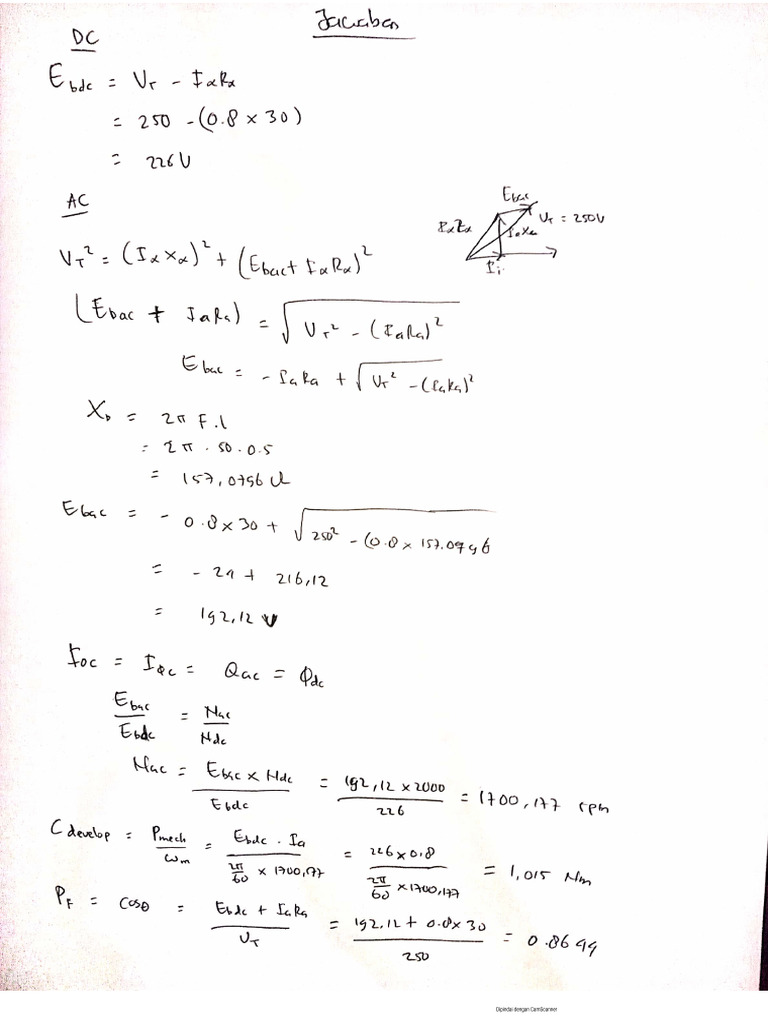 Jawaban
DC
E_bdc = V_T - I_a R_a
= 250 - (0.8 × 30)
= 226 V
AC
E_bac
V_T = 250V
I_a X_a
V_T² = (I_a X_a)² + (E_bac + I_a R_a)²
(E_bac + I_a R_a) = √(V_T² - (I_a R_a)²)
E_bac = - I_a R_a + √(V_T² - (I_a R_a)²)
= 2π F . l
= 2π . 50 . 0.5
= 157,0796 Ω
E_bac = - 0.8 × 30 + √(250² - (0.8 × 157.0796
= - 24 + 216,12
= 192,12 V
= Q_ac = Φ_dc
E_bac / E_bdc = N_ac / N_dc
N_ac = E_bac × N_dc / E_bdc = 192,12 × 2000 / 226 = 1700,177 rpm
C develop = P_mech / ω_m = E_bdc . I_a / (2π/60 × 1700,177) = 226 × 0.8 / (2π/60 × 1700,177) = 1,015 Nm
P_F = cosθ = E_bdc + I_a R_a / V_T = 192,12 + 0.8 × 30 / 250 = 0.8644
Dipindai dengan CamScanner